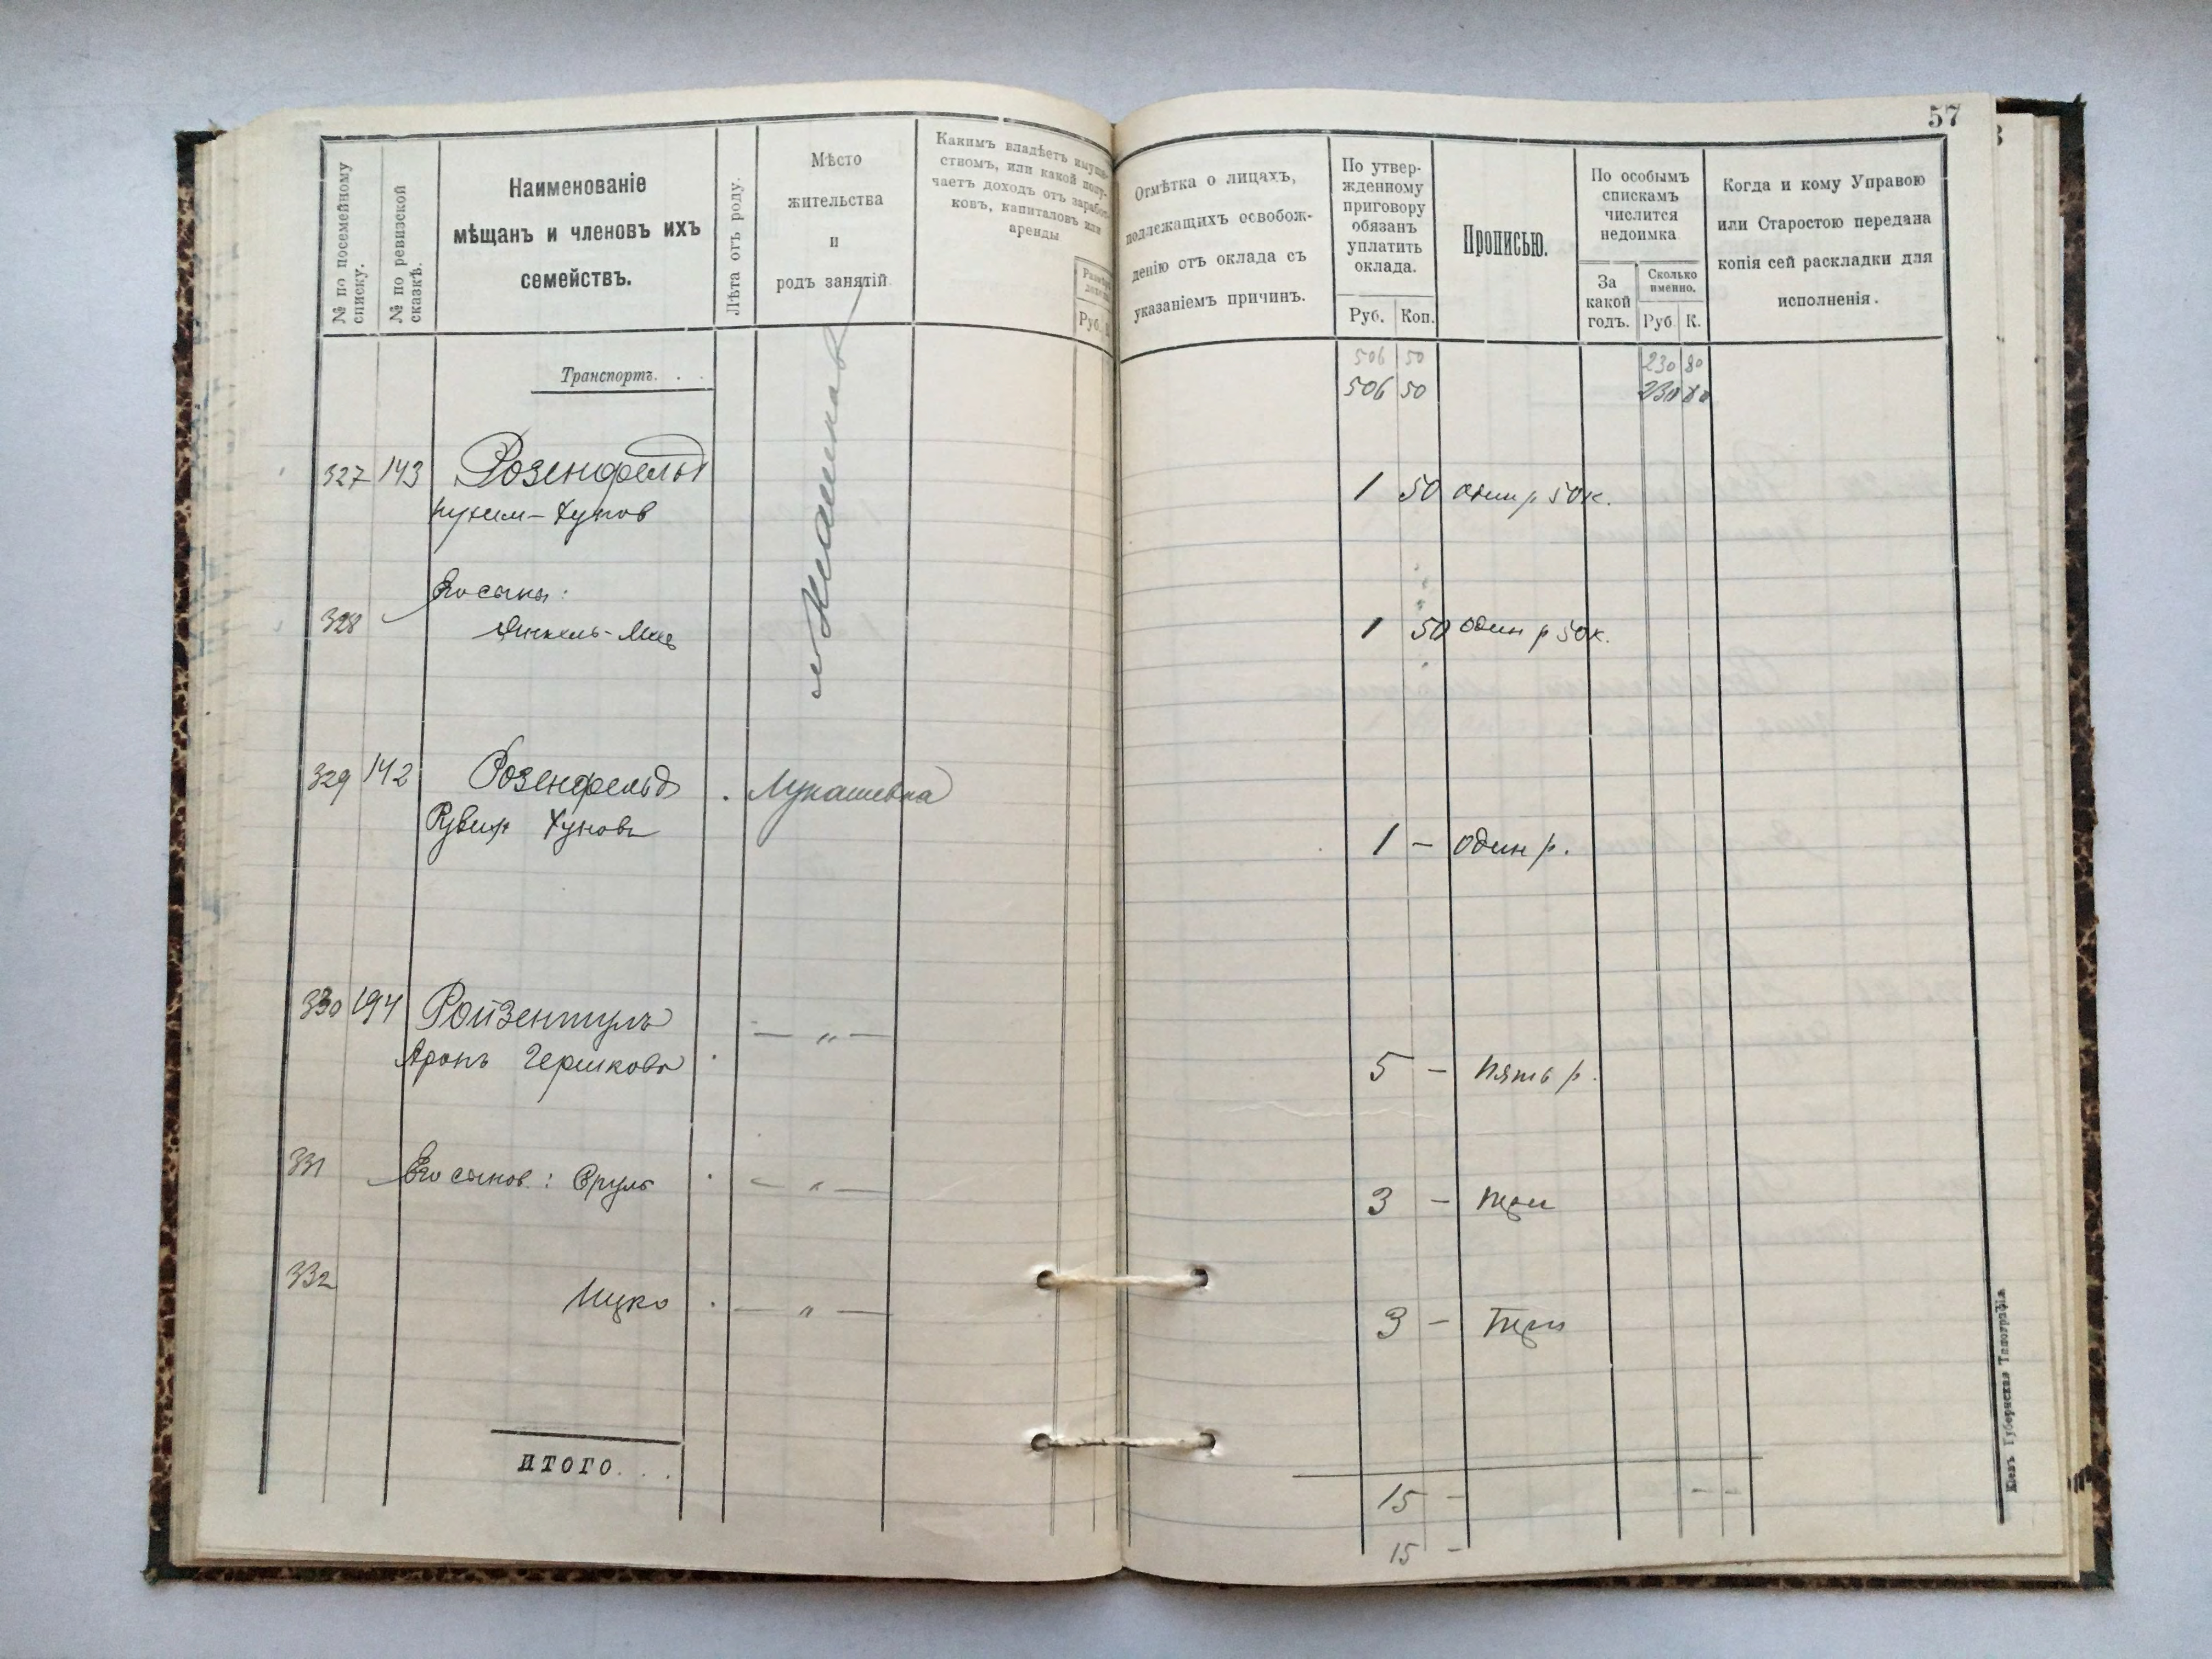 57
№ по посемейному
списку.
№ по ревизской
сказкѣ.
Наименованіе
мѣщанъ и членовъ ихъ
семействъ.
Лѣта отъ роду.
Мѣсто
жительства
и
родъ занятій
Какимъ владѣетъ имуще-
ствомъ, или какой полу-
чаетъ доходъ отъ заработ-
ковъ, капиталовъ или
аренды
Руб.
Отмѣтка о лицахъ,
подлежащихъ освобож-
денію отъ оклада съ
указаніемъ причинъ.
По утвер-
жденному
приговору
обязанъ
уплатить
оклада.
Руб. Коп.
Прописью.
По особымъ
спискамъ
числится
недоимка
За
какой
годъ.
Сколько
именно.
Руб. К.
Когда и кому Управою
или Старостою передана
копія сей раскладки для
исполненія.
Транспортъ. . .
506 50 230 80
506 50 230 80
327 143 Розенфельд
Хунов
1 50 один р 50 к.
Его сыны:
328
1 50 один р 50 к.
329 142 Розенфельд . Лукашевка
Рувин Хунов
1 — один р.
330 194 Ройзентулъ — „ —
Аронъ Гершковъ .
5 — пять р.
331 Его сынов.: Сруль . — „ —
3 — три
332
Ицко . — „ —
3 — Три
ИТОГО. . .
15 — — —
15 —
Кіевъ Губернская Типографія